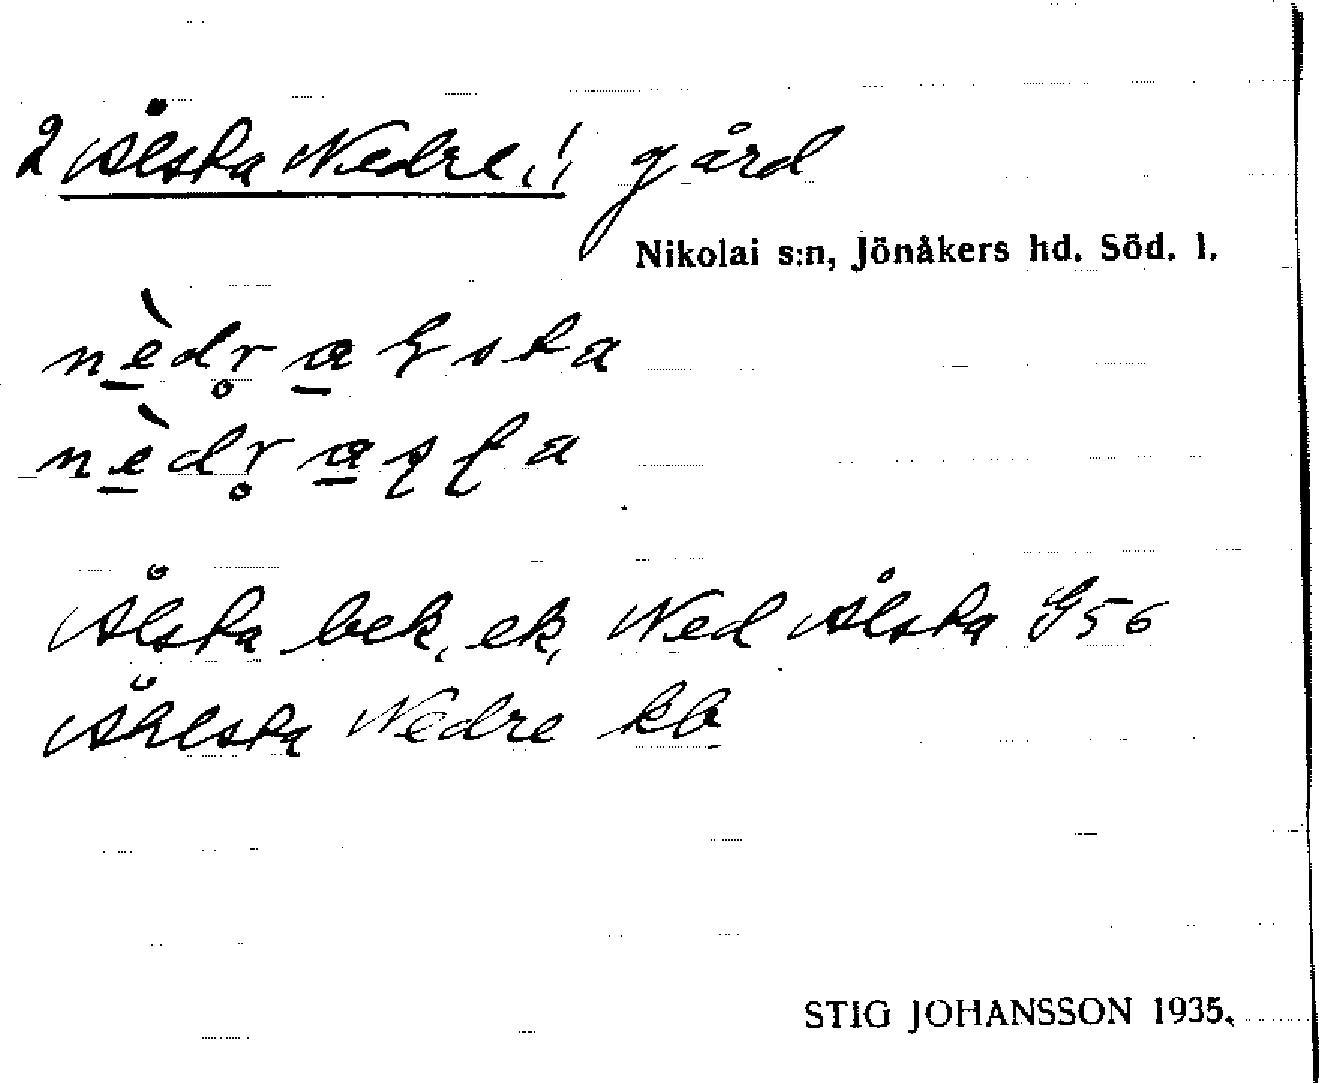 2 Ålsta Nedre, ! gård
Nikolai s:n, Jönåkers hd. Söd. l.
nèdr̥ a ɫ s t a
nèdr̥ a ʂ ʈ a
Ålsta bek, ek, Ned Ålsta G56
Åhlsta Nedre kb
STIG JOHANSSON 1935.